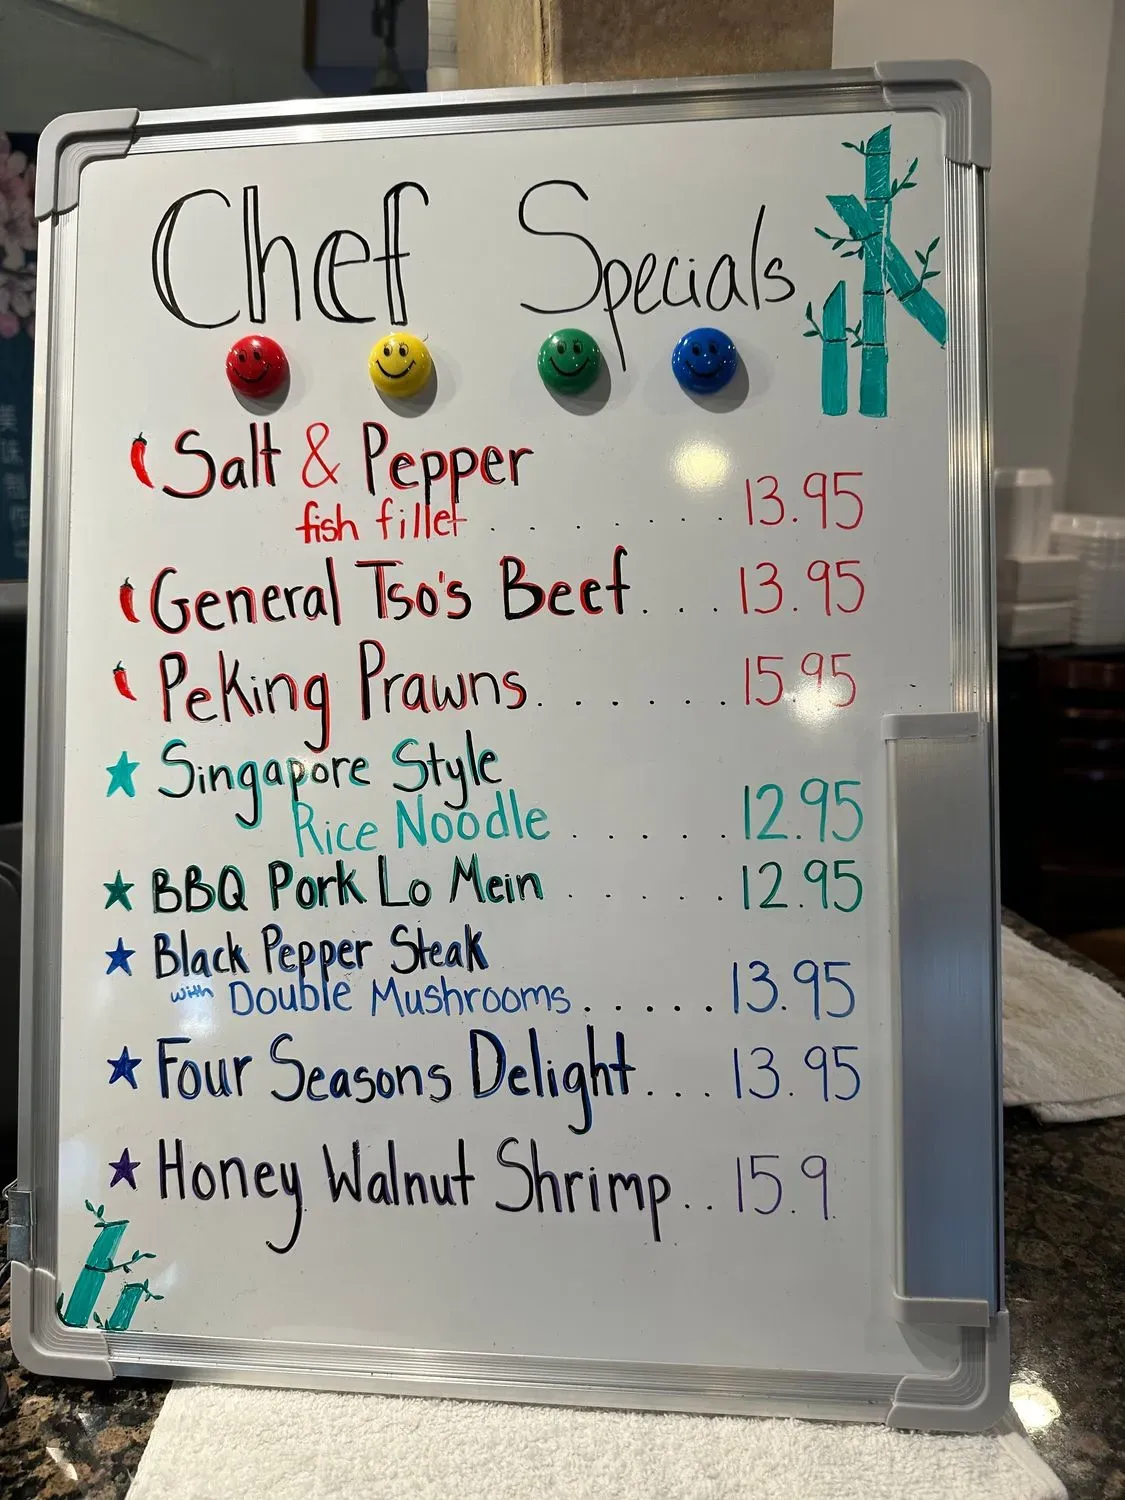 Chef Specials
Salt & Pepper
fish fillet . . . . . . . 13.95
General Tso's Beef . . . 13.95
Peking Prawns . . . . . . 15.95
Singapore Style
Rice Noodle . . . . . 12.95
BBQ Pork Lo Mein . . . . . 12.95
Black Pepper Steak
with Double Mushrooms . . . . . 13.95
Four Seasons Delight . . . 13.95
Honey Walnut Shrimp . . 15.9